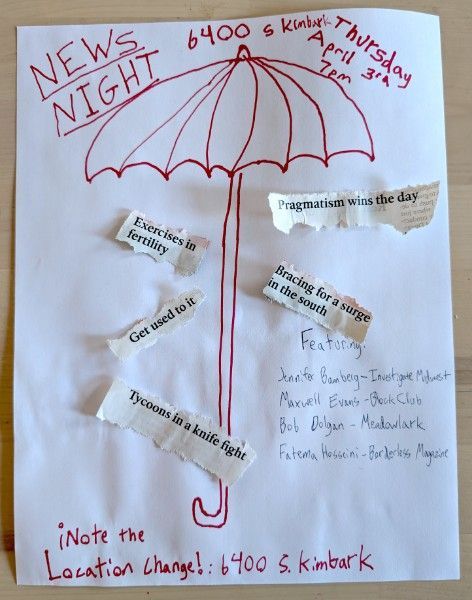 NEWS
NIGHT
6400 S Kimbark
Thursday
April 3rd
7pm
Pragmatism wins the day
Exercises in
fertility
Bracing for a surge
in the south
Get used to it
Tycoons in a knife fight
Featuring:
Jennifer Bamberg - Investigate Midwest
Maxwell Evans - Block Club
Bob Dolgan - Meadowlark
Fatema Hosseini - Borderless Magazine
¡Note the
Location Change!: 6400 S. Kimbark